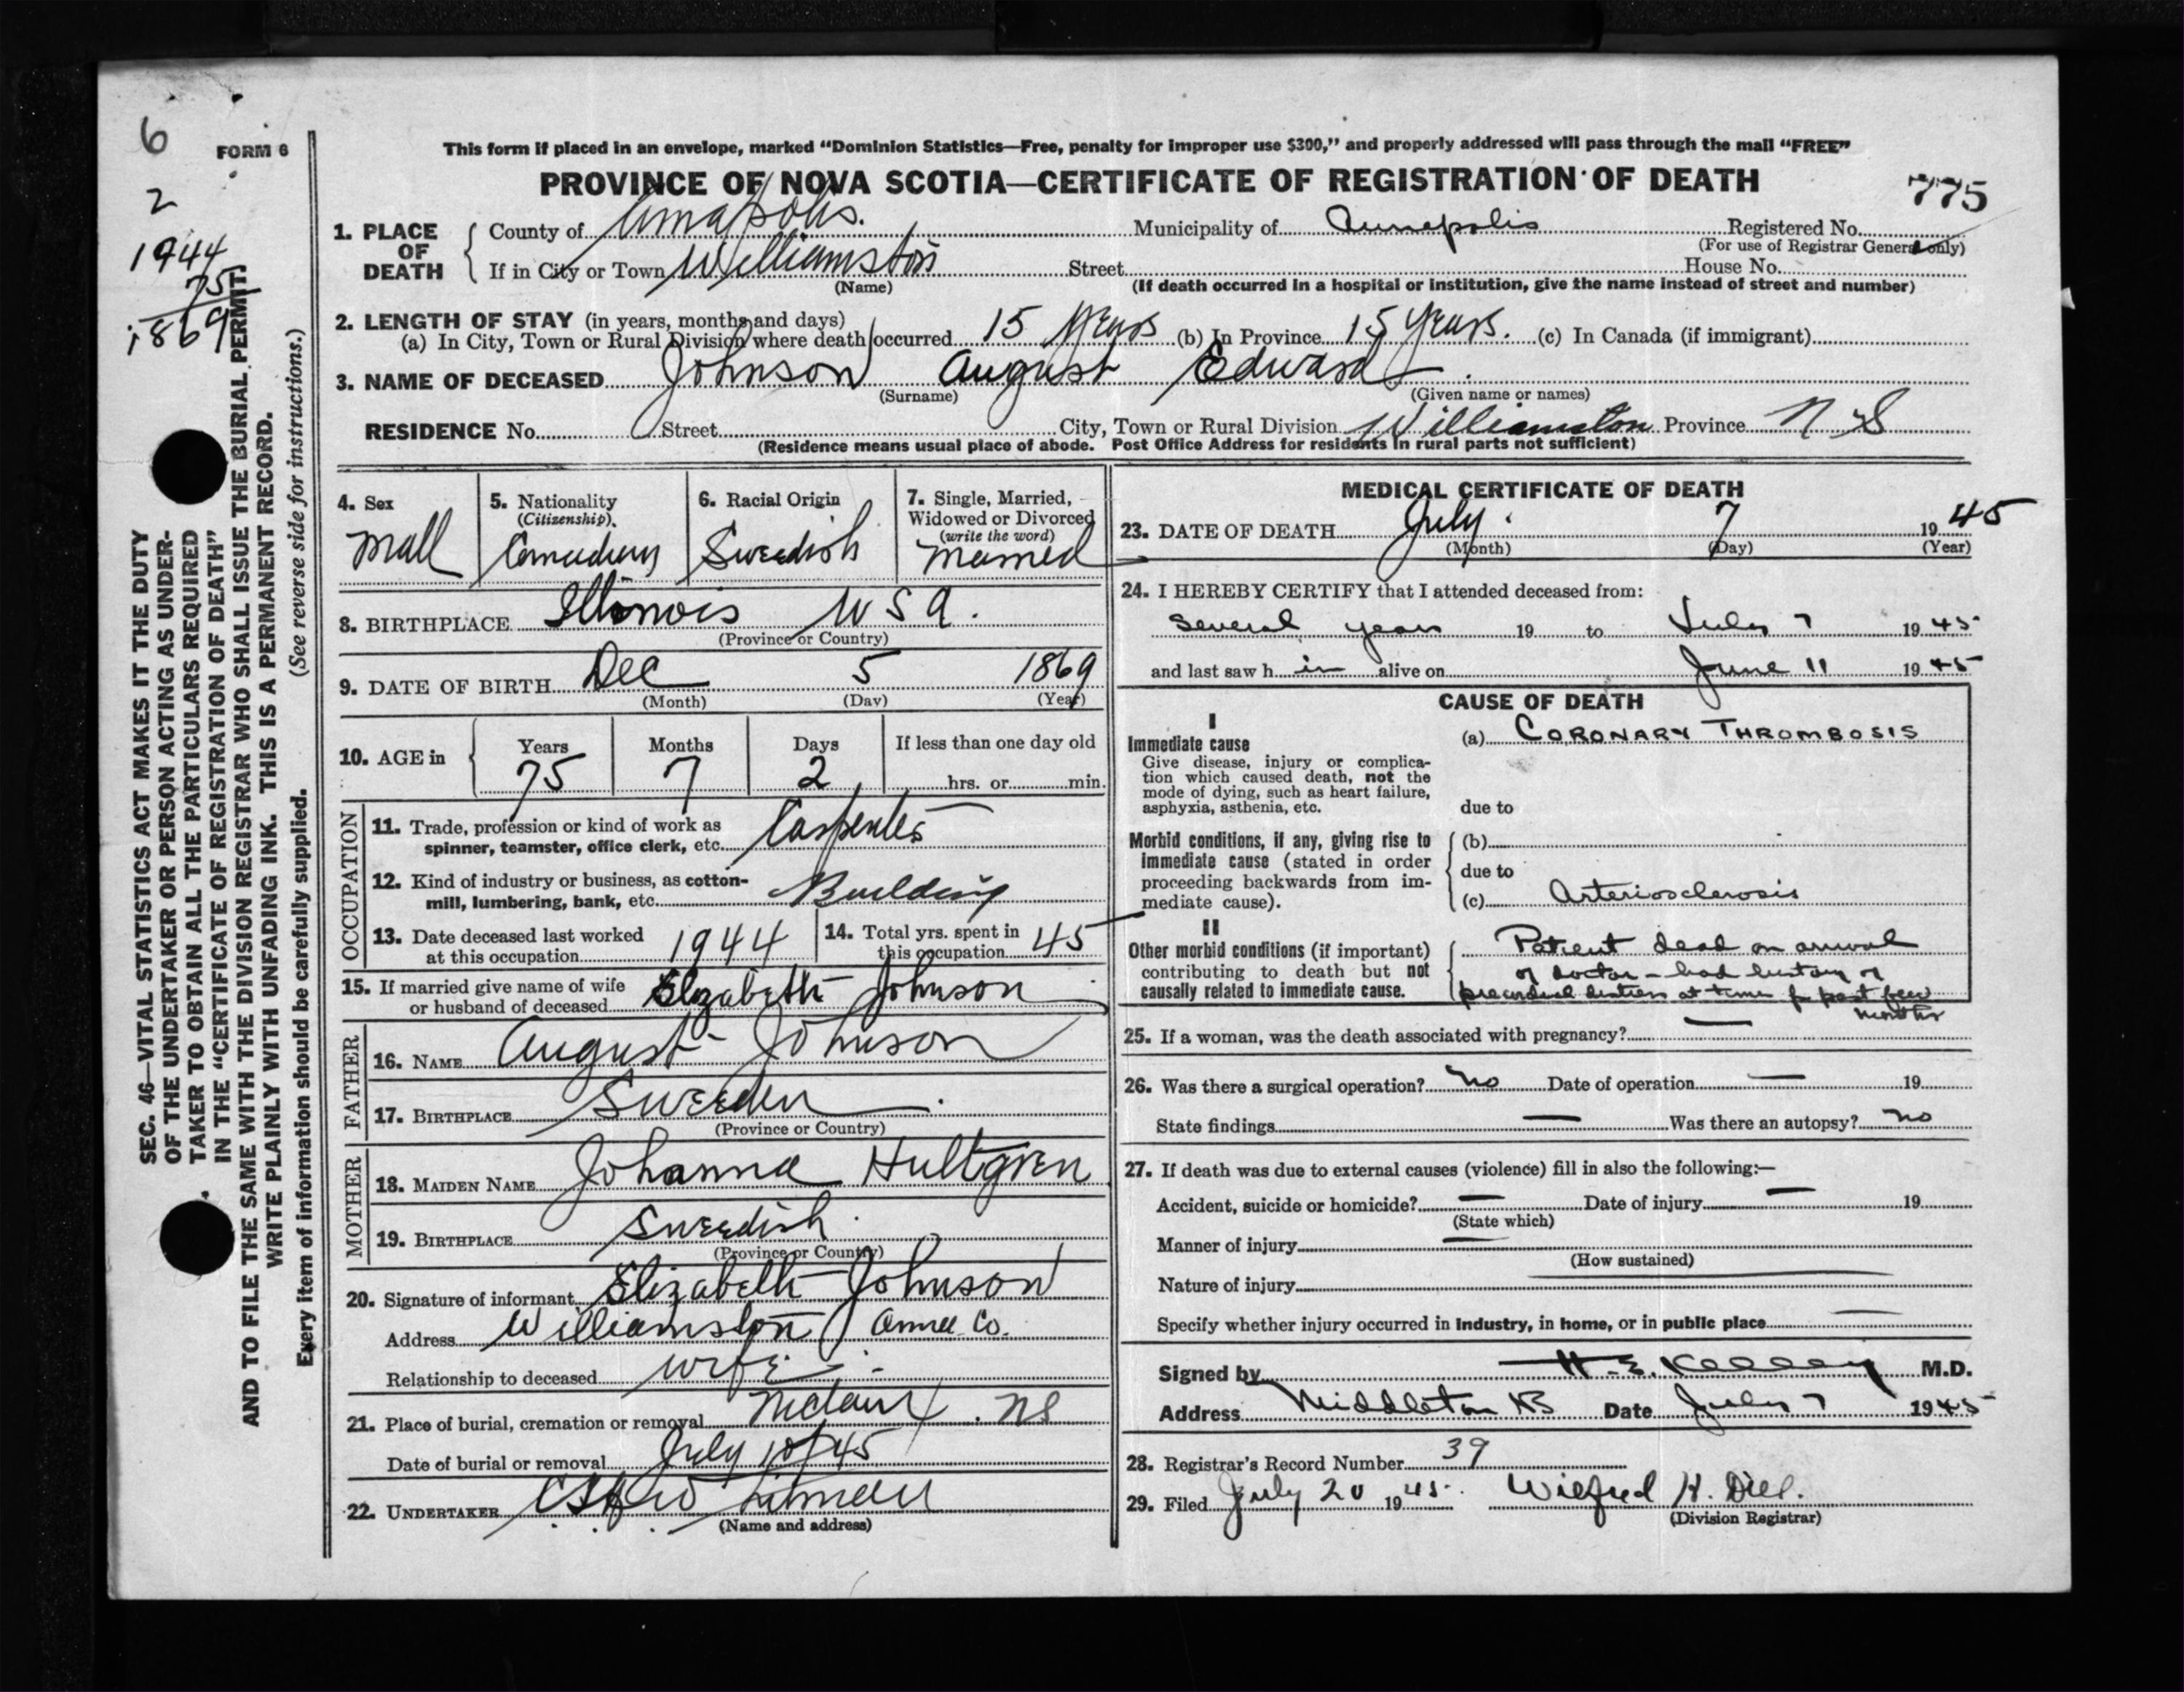 6
FORM 6
2
1944
75
1869
This form if placed in an envelope, marked "Dominion Statistics—Free, penalty for improper use $300," and properly addressed will pass through the mail "FREE"
PROVINCE OF NOVA SCOTIA—CERTIFICATE OF REGISTRATION OF DEATH
775
1. PLACE OF DEATH
County of Annapolis. Municipality of Annapolis Registered No.
(For use of Registrar General only)
If in City or Town Williamston Street House No.
(Name) (If death occurred in a hospital or institution, give the name instead of street and number)
2. LENGTH OF STAY (in years, months and days)
(a) In City, Town or Rural Division where death occurred 15 years (b) In Province 15 years. (c) In Canada (if immigrant)
3. NAME OF DECEASED Johnson August Edward
(Surname) (Given name or names)
RESIDENCE No. Street City, Town or Rural Division Williamston Province N S
(Residence means usual place of abode. Post Office Address for residents in rural parts not sufficient)
4. Sex
Mall
5. Nationality
(Citizenship)
Canadian
6. Racial Origin
Swedish
7. Single, Married,
Widowed or Divorced
(write the word)
Married
8. BIRTHPLACE Illinois USA.
(Province or Country)
9. DATE OF BIRTH Dec 5 1869
(Month) (Day) (Year)
10. AGE in
Years Months Days If less than one day old
75 7 2 hrs. or min.
OCCUPATION
11. Trade, profession or kind of work as
spinner, teamster, office clerk, etc. Carpenter
12. Kind of industry or business, as cotton-
mill, lumbering, bank, etc. Building
13. Date deceased last worked
at this occupation 1944
14. Total yrs. spent in
this occupation 45
15. If married give name of wife
or husband of deceased Elizabeth Johnson
FATHER
16. NAME August Johnson
17. BIRTHPLACE Sweden
(Province or Country)
MOTHER
18. MAIDEN NAME Johanna Hultgren
19. BIRTHPLACE Swedish
(Province or Country)
20. Signature of informant Elizabeth Johnson
Address Williamston Co.
Relationship to deceased wife
21. Place of burial, cremation or removal NS
Date of burial or removal July 10/45
22. UNDERTAKER
(Name and address)
MEDICAL CERTIFICATE OF DEATH
23. DATE OF DEATH July 7 1945
(Month) (Day) (Year)
24. I HEREBY CERTIFY that I attended deceased from:
Several years 19 to July 7 1945
and last saw h im alive on June 11 1945
CAUSE OF DEATH
I
Immediate cause
Give disease, injury or complica-
tion which caused death, not the
mode of dying, such as heart failure,
asphyxia, asthenia, etc.
(a) CORONARY THROMBOSIS
due to
Morbid conditions, if any, giving rise to
immediate cause (stated in order
proceeding backwards from im-
mediate cause).
(b)
due to
(c) Arteriosclerosis
II
Other morbid conditions (if important)
contributing to death but not
causally related to immediate cause.
Patient dead on arrival
of doctor - had history of
precordial distress at times for past few
months
25. If a woman, was the death associated with pregnancy? —
26. Was there a surgical operation? No Date of operation — 19
State findings — Was there an autopsy? no
27. If death was due to external causes (violence) fill in also the following:—
Accident, suicide or homicide? — Date of injury — 19
(State which)
Manner of injury —
(How sustained)
Nature of injury —
Specify whether injury occurred in industry, in home, or in public place —
Signed by H. E. Kelley M.D.
Address Middleton NS Date July 7 1945
28. Registrar's Record Number 39
29. Filed July 20 1945. Wilfred H.
(Division Registrar)
SEC. 46—VITAL STATISTICS ACT MAKES IT THE DUTY
OF THE UNDERTAKER OR PERSON ACTING AS UNDER-
TAKER TO OBTAIN ALL THE PARTICULARS REQUIRED
IN THE "CERTIFICATE OF REGISTRATION OF DEATH"
AND TO FILE THE SAME WITH THE DIVISION REGISTRAR WHO SHALL ISSUE THE BURIAL PERMIT.
WRITE PLAINLY WITH UNFADING INK. THIS IS A PERMANENT RECORD.
Every item of information should be carefully supplied. (See reverse side for instructions.)